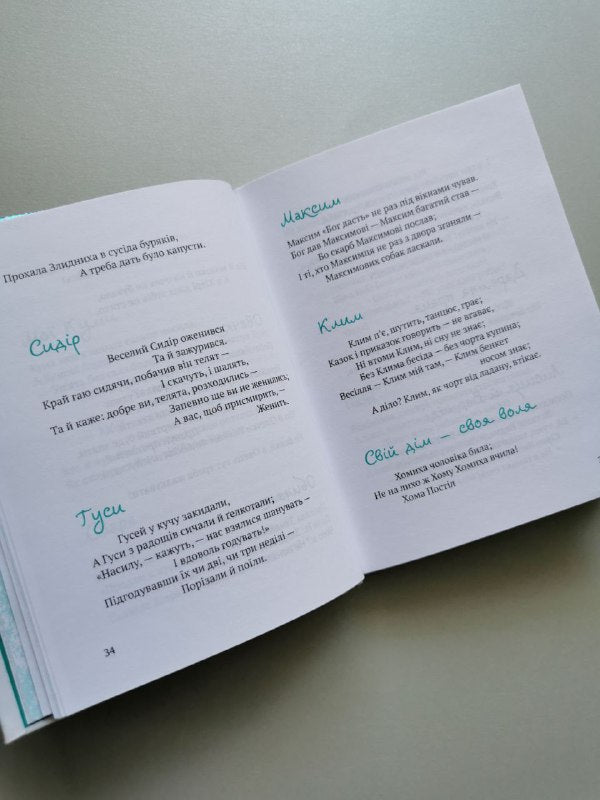 Прохала Злидниха в сусіда буряків,
А треба дать було капусти.
Сидір
Веселий Сидір оженився
Та й зажурився.
Край гаю сидячи, побачив він телят —
І скачуть, і шалять,
Та й каже: добре ви, телята, розходились —
Запевно ще ви не женились;
А вас, щоб присмирить, —
Женить.
Гуси
Гусей у кучу закидали,
А Гуси з радощів сичали й ґелкотали;
«Насилу, — кажуть, — нас взялися шанувать —
І вдоволь годувать!»
Підгодувавши їх чи дві, чи три неділі —
Порізали й поїли.
34
Максим
Максим «Бог дасть» не раз під вікнами чував.
Бог дав Максимові — Максим багатий став —
Бо скарб Максимові послав;
І ті, хто Максимця не раз з двора зганяли —
Максимових собак ласкали.
Клим
Клим п'є, шутить, танцює, грає;
Казок і приказок говорить — не вгаває,
Ні втоми Клим, ні сну не знає;
Без Клима бесіда — без чорта купина;
Весілля — Клим мій там, — Клим бенкет
носом знає;
А діло? Клим, як чорт від ладану, втікає.
Свій дім — своя воля
Хомиха чоловіка била;
Не на лихо ж Хому Хомиха вчила!
Хома Постіл